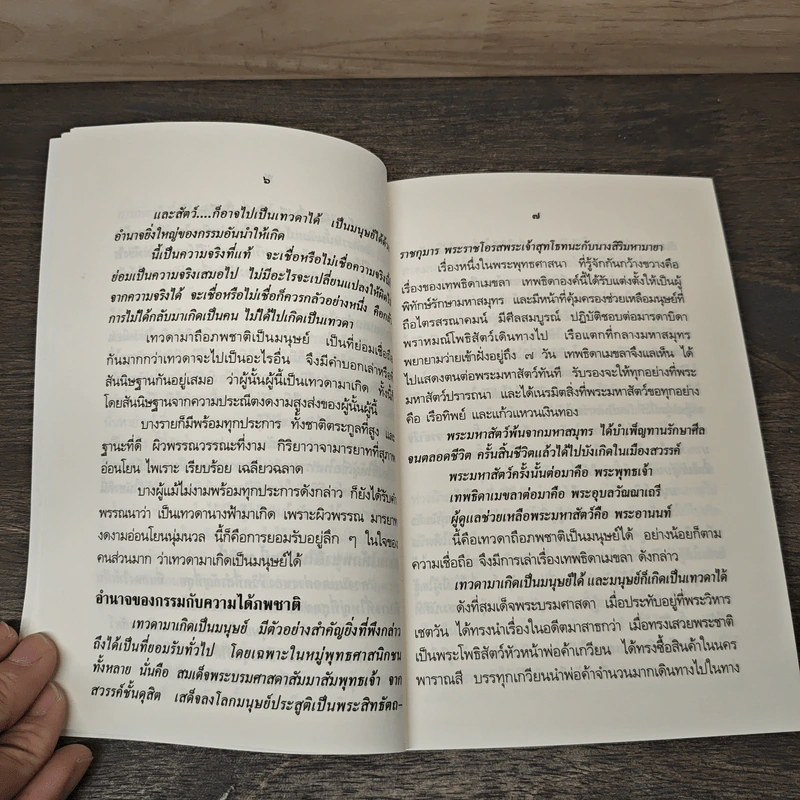 ๖
และสัตว์....ก็อาจไปเป็นเทวดาได้ เป็นมนุษย์ได้ด้วย
อำนาจยิ่งใหญ่ของกรรมอันนำให้เกิด
นี้เป็นความจริงที่แท้ จะเชื่อหรือไม่เชื่อความจริงนี้
ย่อมเป็นความจริงเสมอไป ไม่มีอะไรจะเปลี่ยนแปลงให้ผิดไป
จากความจริงได้ จะเชื่อหรือไม่เชื่อก็ควรกลัวอย่างหนึ่ง คือกลัว
การไม่ได้กลับมาเกิดเป็นคน ไม่ได้ไปเกิดเป็นเทวดา
เทวดามาถือภพชาติเป็นมนุษย์ เป็นที่ย่อมเชื่อถือ
กันมากกว่าเทวดาจะไปเป็นอะไรอื่น จึงมีคำบอกเล่าหรือ
สันนิษฐานกันอยู่เสมอ ว่าผู้นั้นผู้นี้เป็นเทวดามาเกิด ทั้งนี้
โดยสันนิษฐานจากความประณีตงดงามสูงส่งของผู้นั้นผู้นี้
บางรายก็มีพร้อมทุกประการ ทั้งชาติตระกูลที่สูง และ
ฐานะที่ดี ผิวพรรณวรรณะที่งาม กิริยาวาจามารยาทที่สุภาพ
อ่อนโยน ไพเราะ เรียบร้อย เฉลียวฉลาด
บางผู้แม้ไม่งามพร้อมทุกประการดังกล่าว ก็ยังได้รับคำ
พรรณนาว่า เป็นเทวดานางฟ้ามาเกิด เพราะผิวพรรณ มารยาท
งดงามอ่อนโยนนุ่มนวล นี้ก็คือการยอมรับอยู่ลึก ๆ ในใจของ
คนส่วนมาก ว่าเทวดามาเกิดเป็นมนุษย์ได้
อำนาจของกรรมกับความได้ภพชาติ
เทวดามาเกิดเป็นมนุษย์ มีตัวอย่างสำคัญยิ่งที่พึงกล่าว
ถึงได้เป็นที่ยอมรับทั่วไป โดยเฉพาะในหมู่พุทธศาสนิกชน
ทั้งหลาย นั่นคือ สมเด็จพระบรมศาสดาสัมมาสัมพุทธเจ้า จาก
สวรรค์ชั้นดุสิต เสด็จลงโลกมนุษย์ประสูติเป็นพระสิทธัตถ-
๗
ราชกุมาร พระราชโอรสพระเจ้าสุทโธทนะกับนางสิริมหามายา
เรื่องหนึ่งในพระพุทธศาสนา ที่รู้จักกันกว้างขวางคือ
เรื่องของเทพธิดาเมขลา เทพธิดาองค์นี้ได้รับแต่งตั้งให้เป็นผู้
พิทักษ์รักษามหาสมุทร และมีหน้าที่คุ้มครองช่วยเหลือมนุษย์ที่
ถือไตรสรณาคมน์ มีศีลสมบูรณ์ ปฏิบัติชอบต่อมารดาบิดา
พราหมณ์โพธิสัตว์เดินทางไป เรือแตกที่กลางมหาสมุทร
พยายามว่ายเข้าฝั่งอยู่ถึง ๗ วัน เทพธิดาเมขลาจึงแลเห็น ได้
ไปแสดงตนต่อพระมหาสัตว์ทันที รับรองจะให้ทุกอย่างที่พระ
มหาสัตว์ปรารถนา และได้เนรมิตสิ่งที่พระมหาสัตว์ขอทุกอย่าง
คือ เรือทิพย์ และแก้วแหวนเงินทอง
พระมหาสัตว์พ้นจากมหาสมุทร ได้บำเพ็ญทานรักษาศีล
จนตลอดชีวิต ครั้นสิ้นชีวิตแล้วได้ไปบังเกิดในเมืองสวรรค์
พระมหาสัตว์ครั้งนั้นต่อมาคือ พระพุทธเจ้า
เทพธิดาเมขลาต่อมาคือ พระอุบลวัณณาเถรี
ผู้ดูแลช่วยเหลือพระมหาสัตว์คือ พระอานนท์
นี้คือเทวดาถือภพชาติเป็นมนุษย์ได้ อย่างน้อยก็ตาม
ความเชื่อถือ จึงมีการเล่าเรื่องเทพธิดาเมขลา ดังกล่าว
เทวดามาเกิดเป็นมนุษย์ได้ และมนุษย์ก็เกิดเป็นเทวดาได้
ดังที่สมเด็จพระบรมศาสดา เมื่อประทับอยู่ที่พระวิหาร
เชตวัน ได้ทรงนำเรื่องในอดีตมาสาธกว่า เมื่อทรงเสวยพระชาติ
เป็นพระโพธิสัตว์หัวหน้าพ่อค้าเกวียน ได้ทรงซื้อสินค้าในนคร
พาราณสี บรรทุกเกวียนนำพ่อค้าจำนวนมากเดินทางไปในทาง